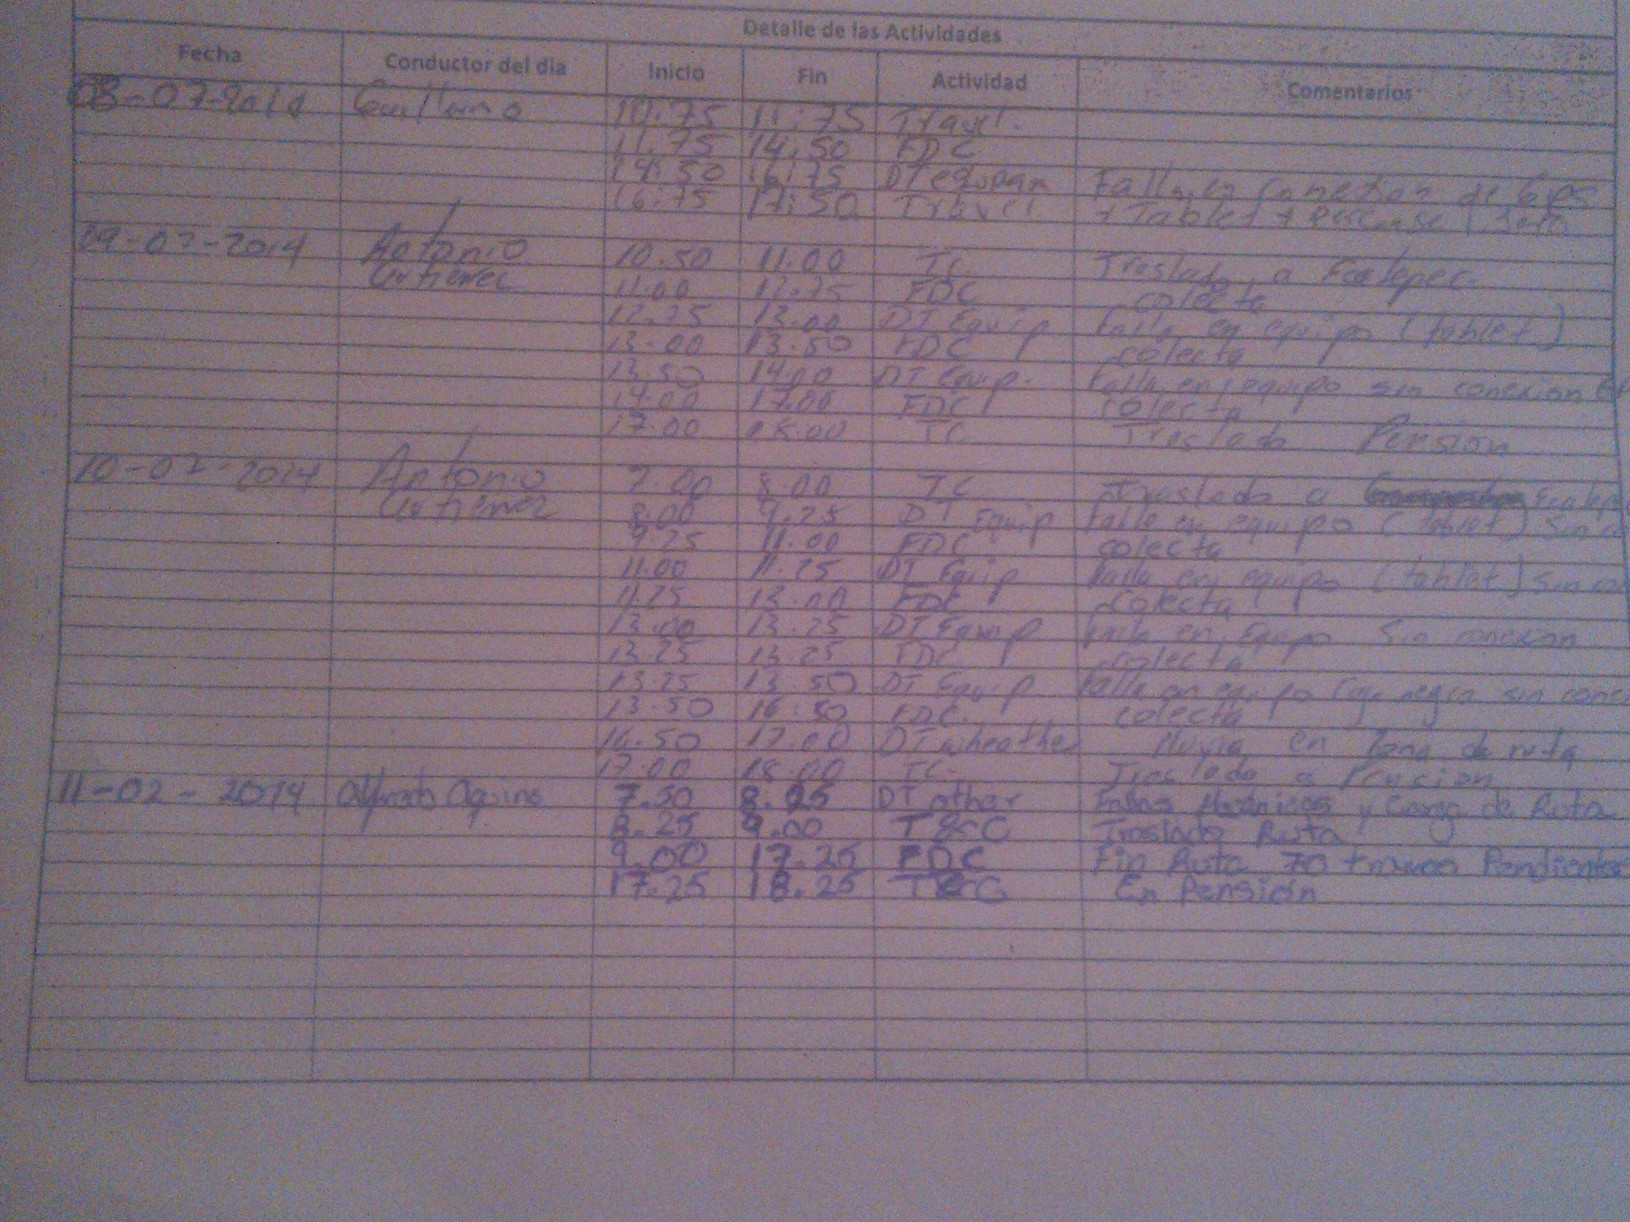 Detalle de las Actividades
Fecha Conductor del dia Inicio Fin Actividad Comentarios
08-07-2014 Guillermo 10:75 11:75 Travel.
11.75 14:50 FDC
14:50 16:75 DT equipam Falla en Conexion de Gps
16:75 17:50 Travel + Tablet +
09-07-2014 Antonio 10.50 11.00 TC. Traslado a Ecatepec.
Gutierrez 11.00 12.75 FDC colecta
12.75 13.00 DT Equip Falla en equipo (tablet)
13.00 13.50 FDC colecta
13.50 14.00 DT Equip. Falla en equipo sin conexion
14.00 17.00 FDC colecta
17.00 18.00 TC Traslado Pension
10-07-2014 Antonio 7.00 8.00 TC Traslado a
Gutierrez 8.00 9.25 DT Equip Falla en equipo (tablet) Sin
9.25 11.00 FDC colecta
11.00 11.25 DT Equip Falla en equipo (tablet) Sin
11.25 13.00 FDC colecta
13.00 13.25 DT Equip Falla en Equipo Sin conexion
13.25 13.25 FDC colecta
13.25 13.50 DT Equip Falla en equipo caja negra sin
13.50 16:50 FDC. colecta
16.50 17.00 DT wheather lluvia en zona de ruta
17.00 18.00 TC. Traslado a Pension
11-02-2014 Alfredo Aquino 7.50 8.25 DT other Fallas Mecanicas y Carga de Ruta
8.25 9.00 T&C Traslado Ruta
9.00 17.25 FDC Fin Ruta 70 tramos Pendientes
17.25 18.25 En Pensión